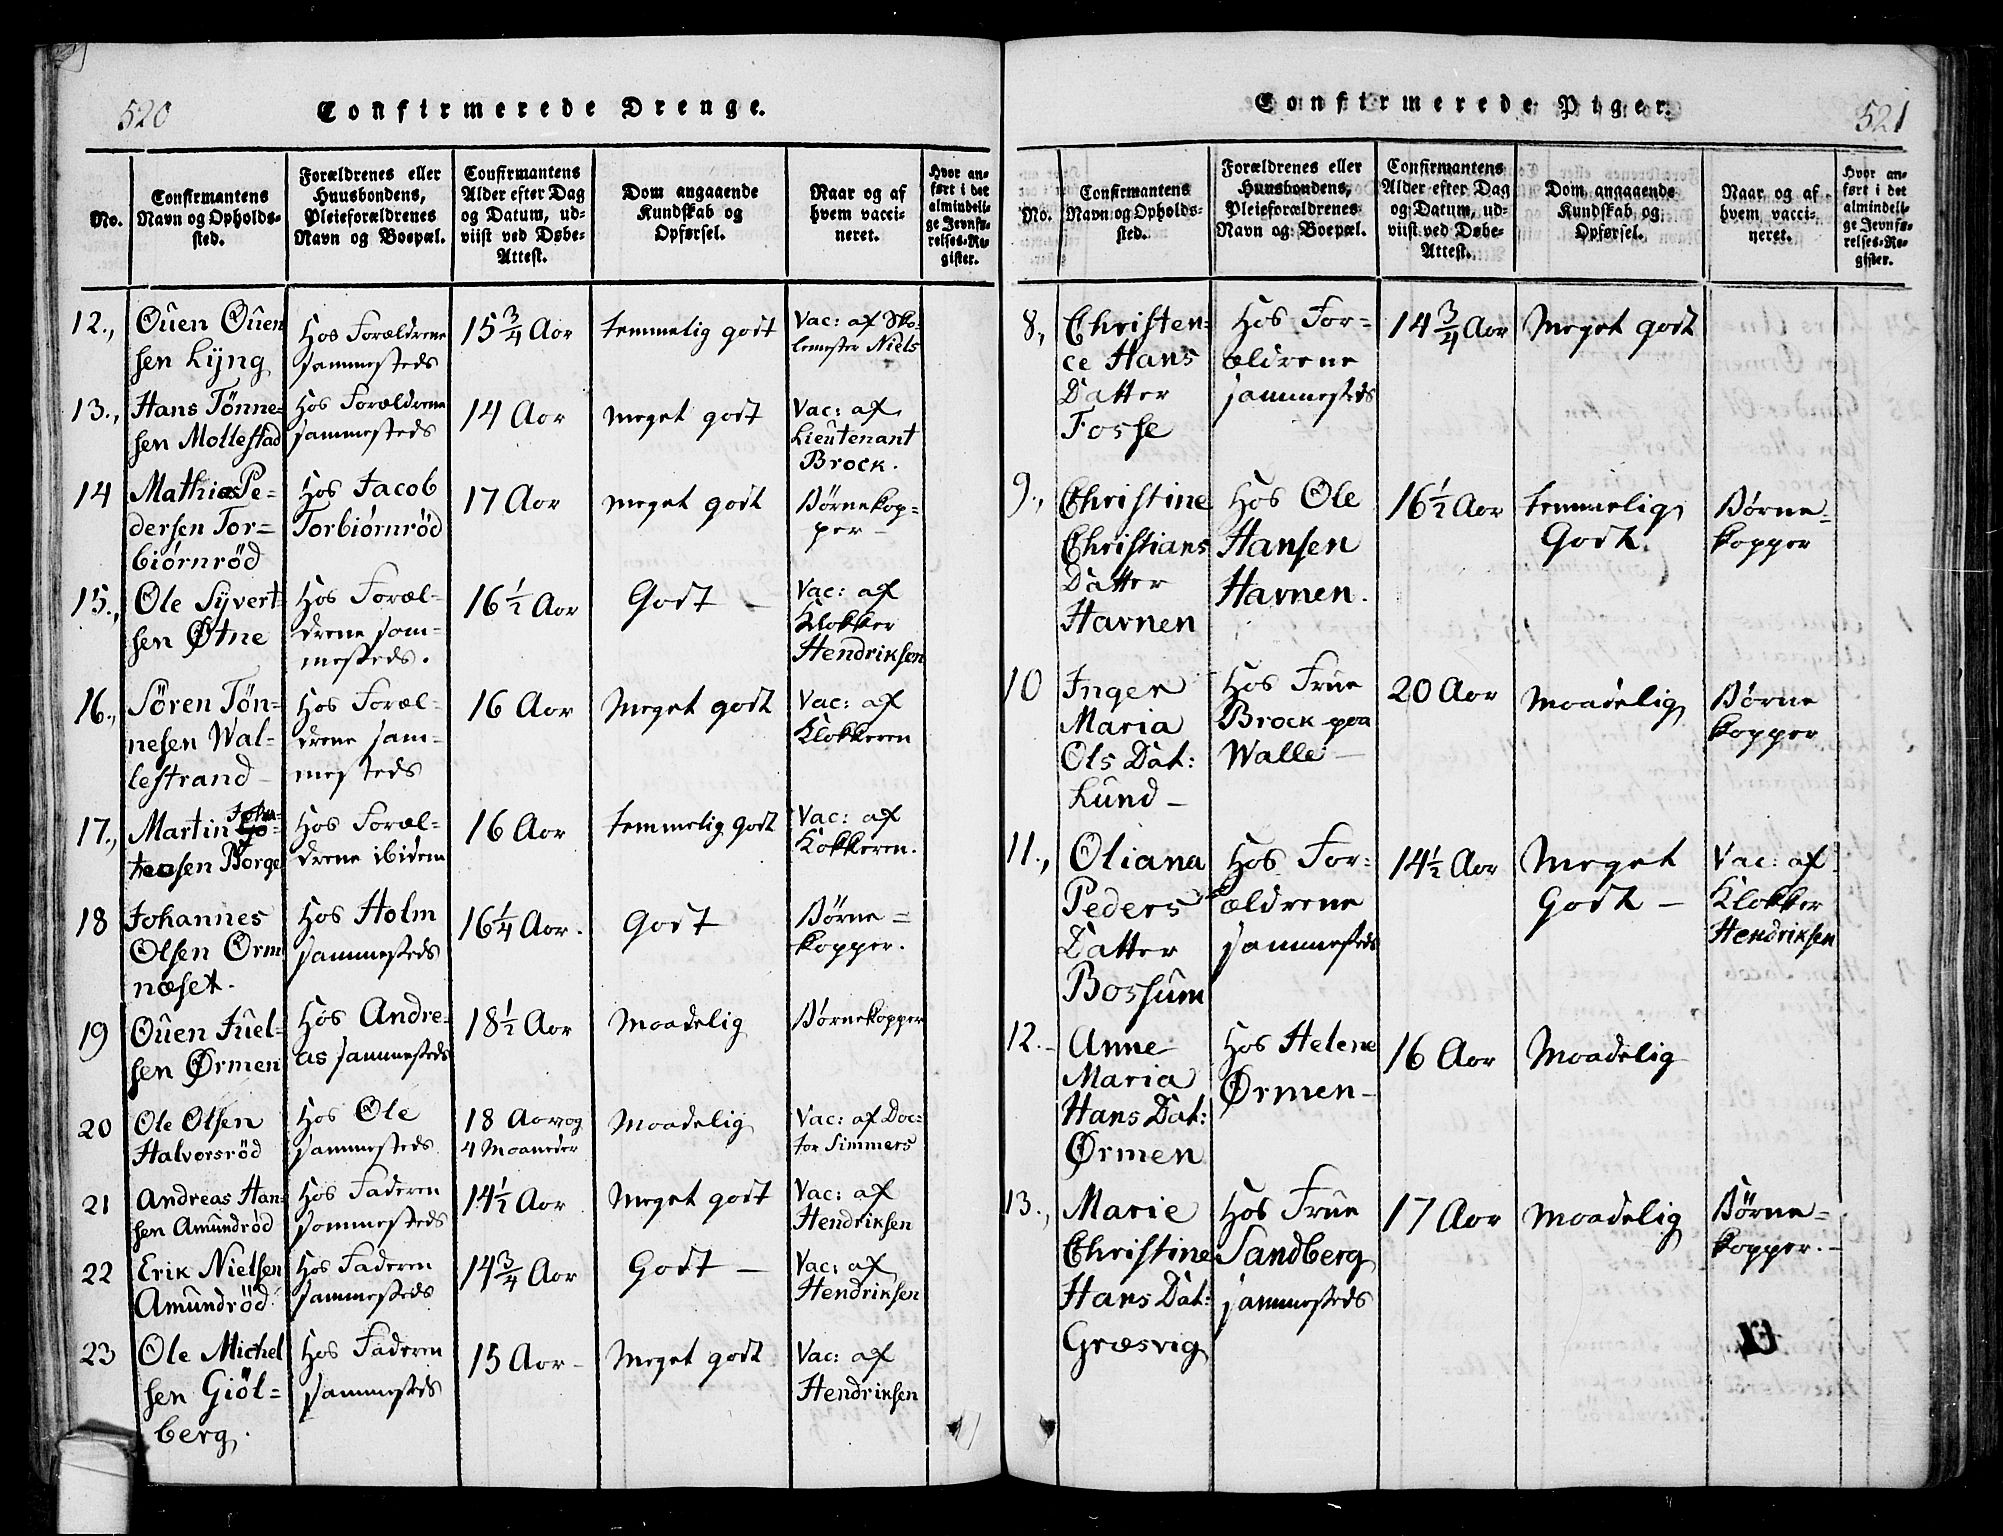 520
Confirmerede Drenge.
No.
Confirmantens
Navn og Opholds-
sted.
Forældrenes eller
Huusbondens,
Pleieforældrenes
Navn og Boepæl.
Confirmantens
Alder efter Dag
og Datum, ud-
viist ved Døbe-
Attest.
Dom angaaende
Kundskab og
Opførsel.
Naar og af
hvem vacci-
neret.
Hvor an-
ført i det
almindeli-
ge Jevnfø-
relses-Re-
gister.
12.,
Ouen Ouen
sen Lyng
Hos Forældrene
sammesteds
15 3/4 Aar
temmelig godt
Vac: af Sko-
lemester Niels
13.,
Hans Tönne-
sen Mollestad
Hos Forældrene
sammesteds
14 Aar
meget godt
Vac: af
Lieutenant
Brock.
14
Mathias Pe-
dersen Tor-
biørnröd
Hos Jacob
Torbiørnröd
17 Aar
meget godt
Børnekop-
per
15.,
Ole Syvert-
sen Øtne
Hos Foræl-
drene sam-
mesteds.
16 1/2 Aar
Godt –
Vac: af
Klokker
Hendriksen
16.,
Sören Tön-
nesen Wal-
lestrand
Hos Foræl-
drene sam-
mesteds
16 Aar
Meget godt
Vac: af
Klokkeren
17.,
Martin
sen Borge
Hos Foræl-
drene ibidem
16 Aar
temmelig godt
Vac: af
Kokkeren.
18
Johannes
Olsen Orm
næset.
Hos Holm
sammesteds
16 1/4 Aar.
Godt
Børne-
kopper.
19
Ouen Juel-
sen Ørmen
Hos Andre-
as sammesteds
18 1/2 Aar
Maadelig
Børnekopper
20
Ole Olsen
Halvorsröd
Hos Ole
sammesteds
18 Aar og
4 Maaneder
Maadelig
Vac: af Doc-
tor Simmers
21
Andreas Han-
sen Amundröd
Hos Faderen
sammesteds
14 1/2 Aar
Meget godt
Vac: af
Hendriksen
22
Erik Nielsen
Amundröd
Hos Faderen
sammesteds
14 3/4 Aar
Godt –
Vac: af
Hendriksen
23
Ole Michel
sen Giöl-
berg.
Hos Faderen
sammesteds
15 Aar –
Meget godt
Vac: af
Hendriksen
Confirmerede Piger.
521
No.
Confirmantens
Navn og Opholds-
sted.
Forældrenes eller
Huusbondens,
Pleieforældrenes
Navn og Boepæl.
Confirmantens
Alder efter Dag
og Datum, ud-
viist ved Døbe-
Attest.
Dom angaaende
Kundskab og
Opførsel.
Naar og af
hvem vacci-
neret.
Hvor an-
ført i det
almindeli-
ge Jevnfø-
relses-Re-
gister.
8,
Christen-
ce Hans
Datter
Fosse
Hos For-
ældrene
sammesteds
14 3/4 Aar
Meget godt
9.,
Christine
Christians
Datter
Havnen
Hos Ole
Hansen
Havnen.
16 1/2 Aar
temmelig
Godt.
Børne-
kopper
10
Inger
Maria
Ols Dat:
Lund –
Hos Frue
Brock paa
Walle –
20 Aar
Maadelig
Børne
kopper
11.,
Oliana
Peders
Datter
Bossum
Hos For-
ældrene
sammesteds
14 1/2 Aar
Meget
Godt –
Vac: af
Klokker
Hendriksen
12.–
Anne
Maria
Hans Dat:
Ørmen
Hos Helene
Ørmen –
16 Aar
Maadelig
13.,
Marie
Christine
Hans Dat:
Græsvig
Hos Frue
Sandberg
sammesteds
17 Aar
Maadelig
Børne-
kopper. –